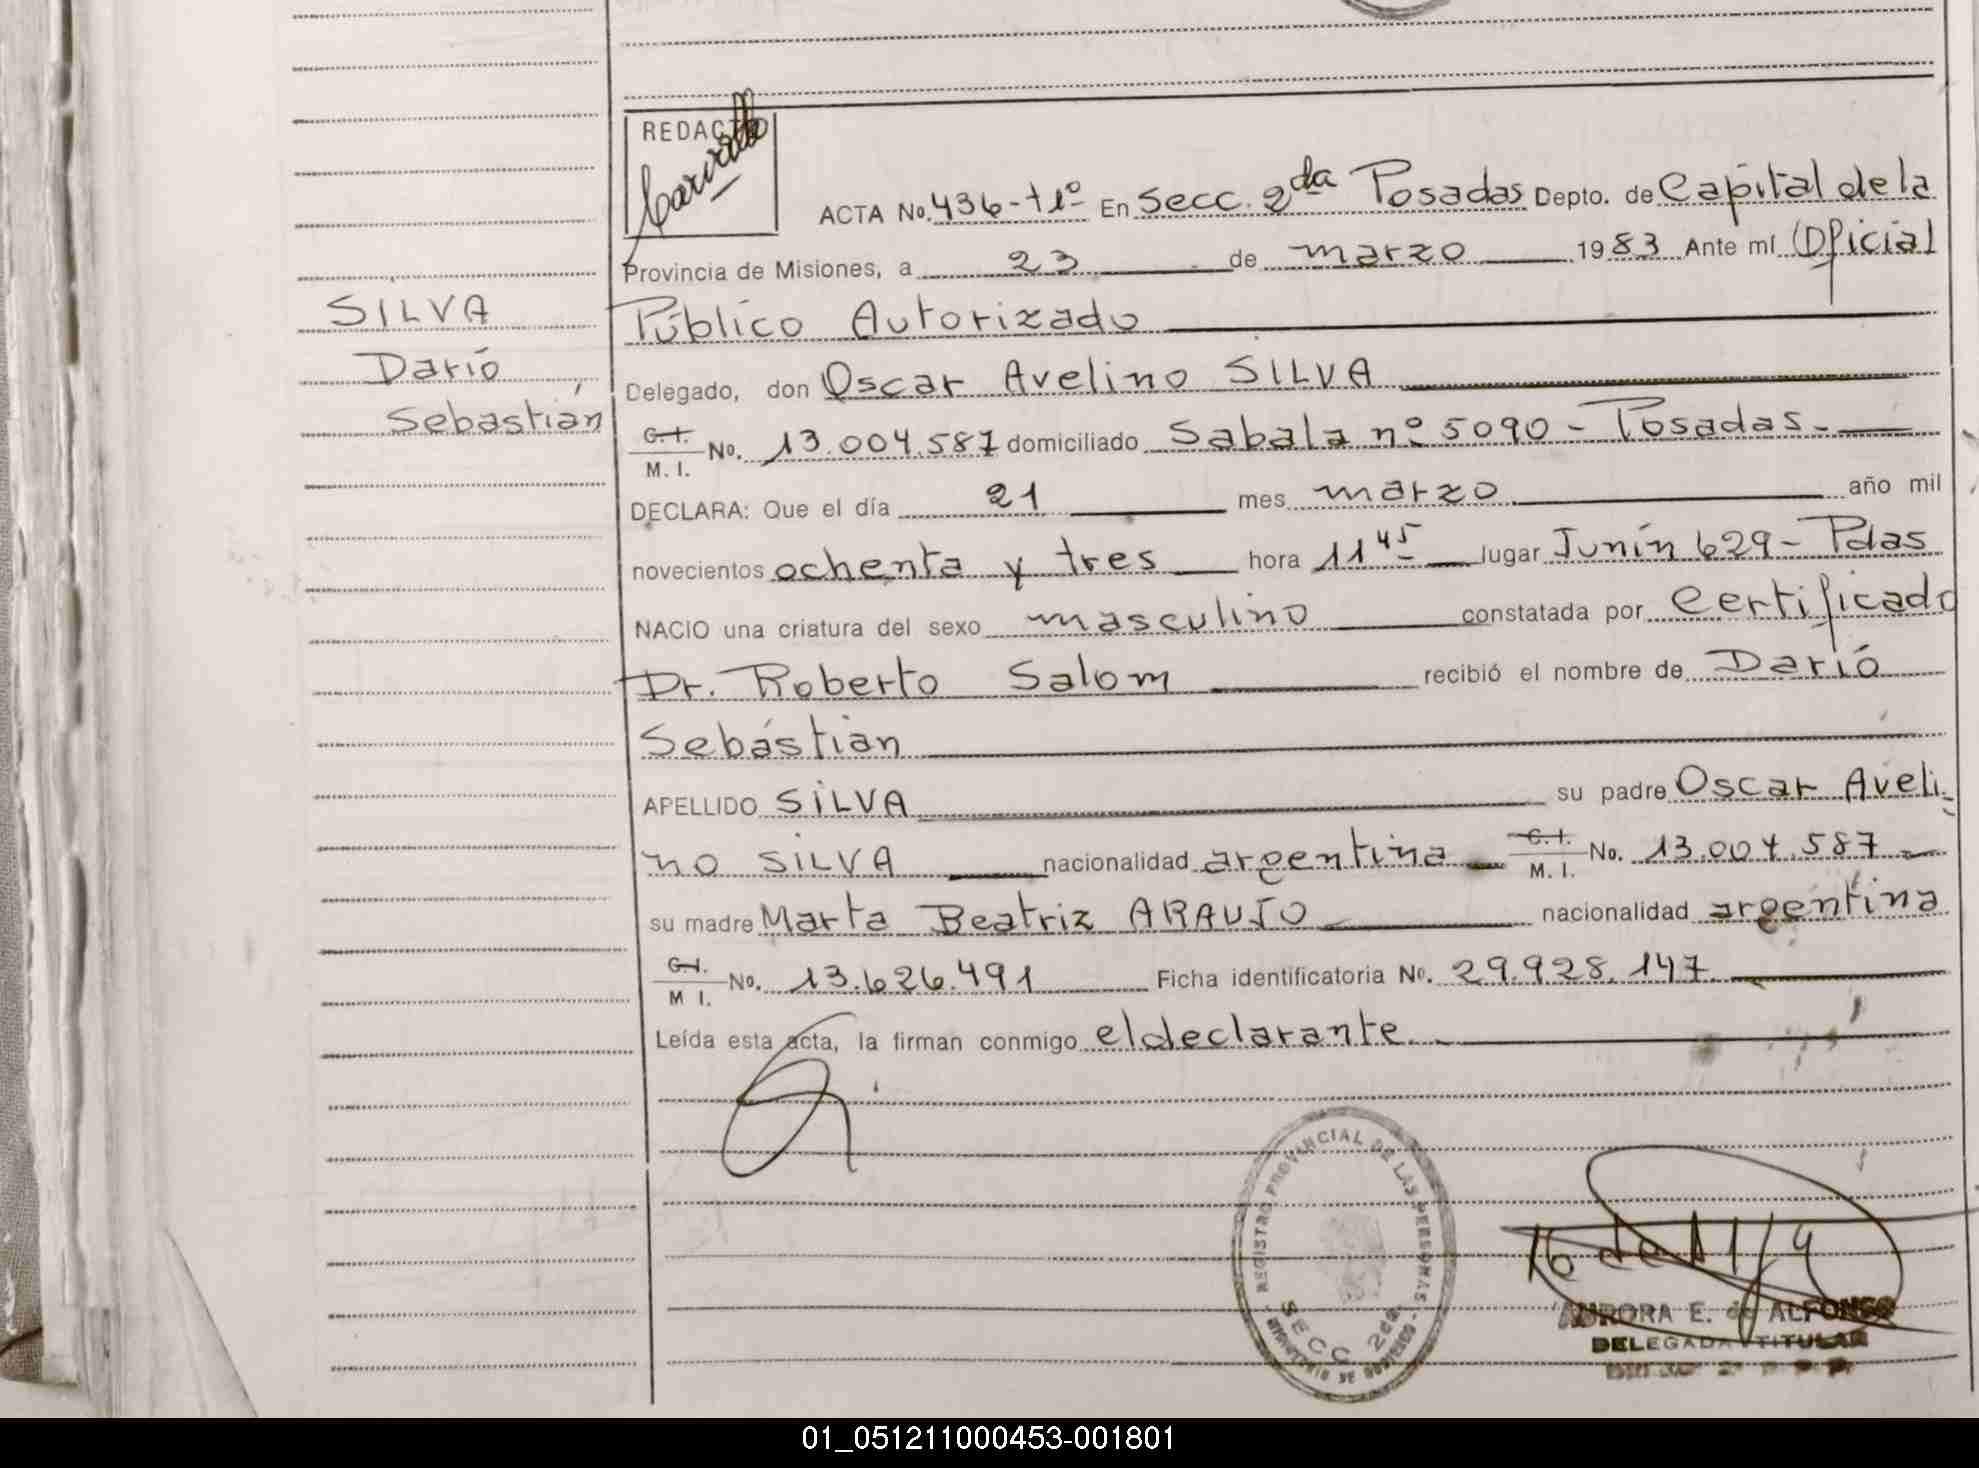 REDACTO
ACTA No. 436-t1º En Secc. 2da Posadas Depto. de Capital de la
Provincia de Misiones, a 23 de marzo 1983 Ante mí (Oficial
SILVA
Público Autorizado
Darió
Delegado, don Oscar Avelino SILVA
Sebastián
C. I. M. I. No. 13.004.587 domiciliado Sabala nº 5090 - Posadas.-
DECLARA: Que el día 21 mes marzo año mil
novecientos ochenta y tres hora 11 45 lugar Junín 629 - Pdas
NACIO una criatura del sexo masculino constatada por Certificado
Dr. Roberto Salom recibió el nombre de Darió
Sebástian
APELLIDO SILVA su padre Oscar Aveli-
no SILVA nacionalidad argentina C. I. M. I. No. 13.004.587
su madre Marta Beatriz ARAUJO nacionalidad argentina
C. I. M I. No. 13.626.491 Ficha identificatoria No. 29.928.147
Leída esta acta, la firman conmigo el declarante.
REGISTRO PROVINCIAL DE LAS PERSONAS - MINISTERIO DE GOBIERNO
SECC 2da
AURORA E. de ALFONSO
DELEGADA TITULAR
01_051211000453-001801